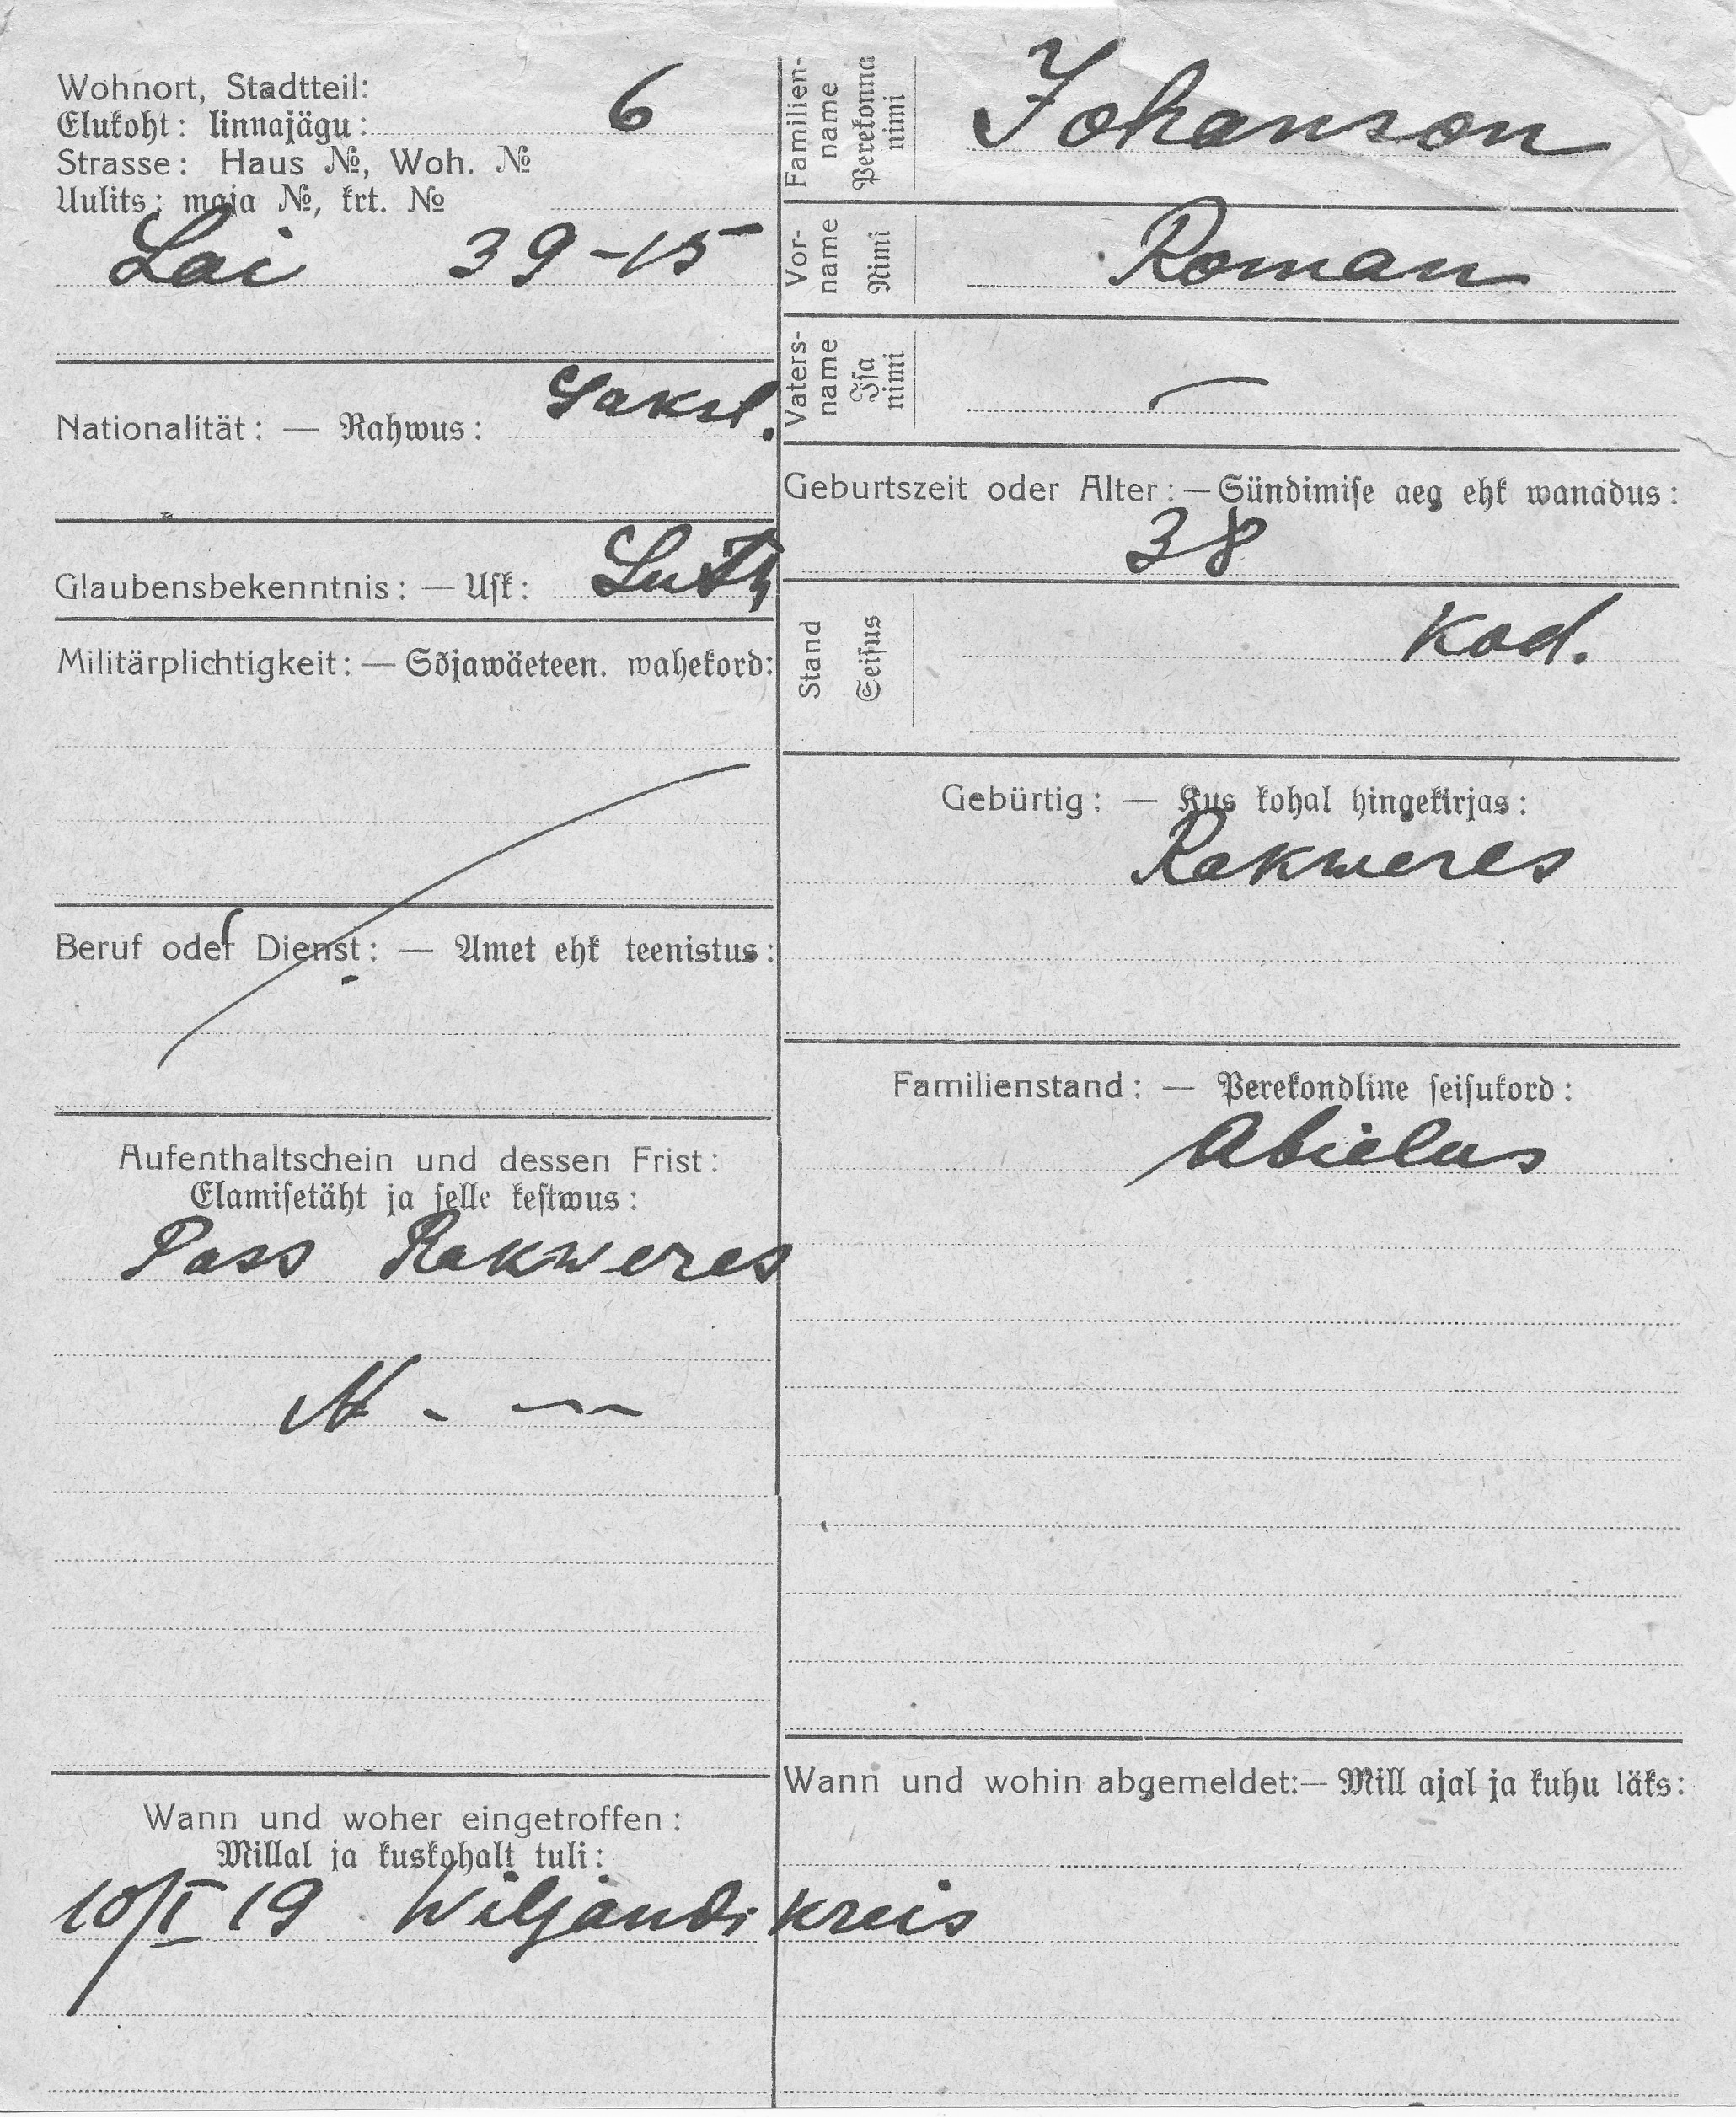 Wohnort, Stadtteil:
Elukoht: linnajägu: 6
Strasse: Haus №, Woh. №
Uulits: maja №, krt. №
Lai 39-15
Nationalität: — Rahwus: Saksl.
Glaubensbekenntnis: — Usk: Luth
Militärplichtigkeit: — Sõjawäeteen. wahekord:
Beruf oder Dienst: — Amet ehk teenistus:
Aufenthaltschein und dessen Frist:
Elamisetäht ja selle kestwus:
Pass Rakweres
№ - —
Wann und woher eingetroffen:
Millal ja kuskohalt tuli:
10/I 19 Wiljandi kreis
Familien-
name
Perekonna
nimi
Johanson
Vor-
name
Nimi
Roman
Vaters-
name
Isa
nimi
—
Geburtszeit oder Alter: — Sündimise aeg ehk wanadus:
38
Stand
Seisus
Kod.
Gebürtig: — Kus kohal hingekirjas:
Rakweres
Familienstand: — Perekondline seisukord:
Abielus
Wann und wohin abgemeldet: — Mill ajal ja kuhu läks: